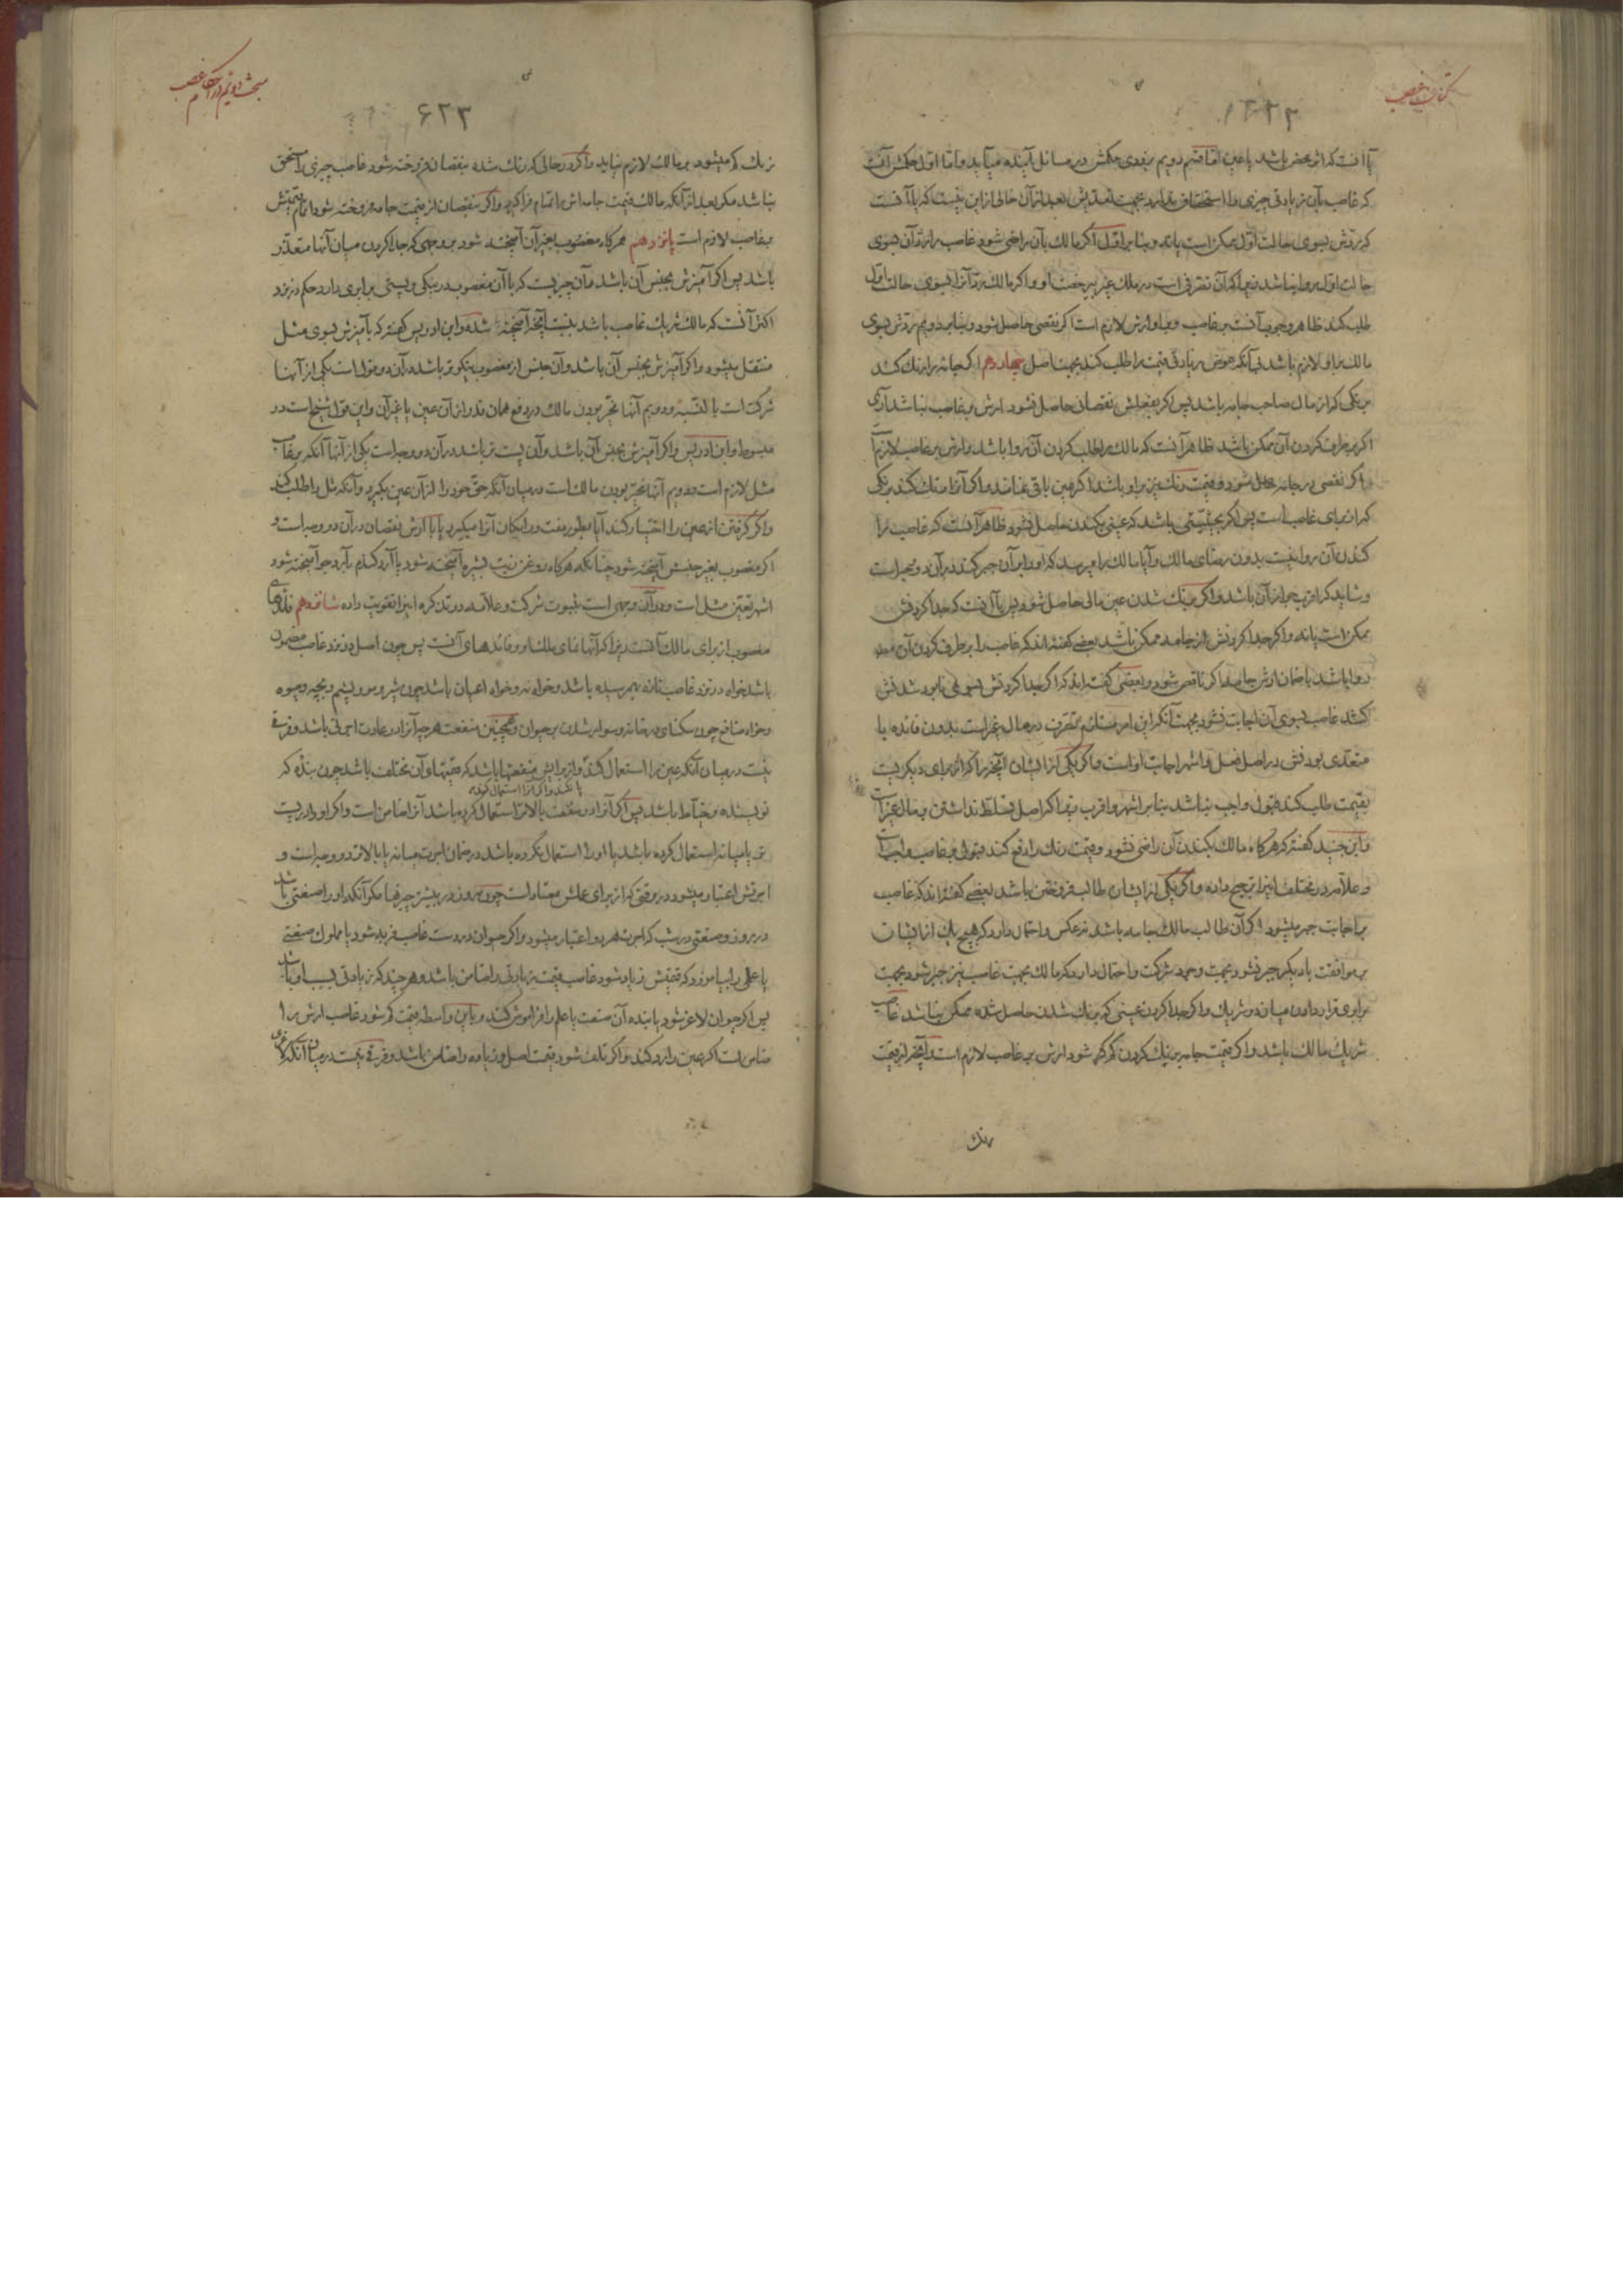 کتاب غصب
یا آنست که اثر محض باشد یا عین اما قسم دویم بزودی حکمش در مسائل آینده میآید و اما اول حکمش آنست
که غاصب بآن زیادتی چیزی را استحقاق ندارد بجهت تعدیش بعد از آن خالی از این نیست که یا آنست
که ردش بسوی حالت اول ممکن است یا نه و بنا بر اول اگر مالک بآن راضی شود غاصب را رد آن بسوی
حالت اول روا نباشد زیرا که آن تصرفی است در ملک غیر بی رخصت او و اگر مالک رد آنرا بسوی حالت اول
طلب کند ظاهر وجوب آنست بر غاصب و بر او ارش لازم است اگر نقصی حاصل شود و بنا بر دویم ردش بسوی
مالک بر او لازم باشد بی آنکه عوض زیادتی قیمت را طلب کند بجهت اصل چهاردهم اگر جامه را رنگ کند
برنگی که از مال صاحب جامه باشد پس اگر بفعلش نقصانی حاصل نشود ارش بر غاصب نباشد آری
اگر برطرف کردن آن ممکن باشد ظاهر آنست که مالک را طلب کردن آن روا باشد و ارش بر غاصب لازم
اگر نقصی در جامه حاصل شود و قیمت رنگ نیز بر او باشد اگر عین باقی نماند و اگر آنرا رنگ کند برنگی
که از برای غاصب است پس اگر بحیثیتی باشد که عینی بکندن حاصل نشود ظاهر آنست که غاصب را
کندن آن روا نیست بدون رضای مالک و آیا مالک را میرسد که او را بر آن جبر کند در آن دو وجه است
و شاید که اقرب جواز آن باشد و اگر برنگ شدن عین مالی حاصل شود پس یا آنست که جدا کردنش
ممکن است یا نه و اگر جدا کردنش از جامه ممکن باشد بعضی گفته‌اند که غاصب را برطرف کردن آن
روا باشد با ضمان ارش جامه اگر ناقص شود و بعضی گفته‌اند که اگر جدا کردنش بسوی نابود شدنش
کشد غاصب بسوی آن اجابت نشود بجهت آنکه این امر مستلزم تصرف در مال غیر است بدون فائده یا
متعدی بودنش در اصل فعل و اشهر اجابت اوست و اگر یکی از ایشان آنچه را که از برای دیگریست
بقیمت طلب کند قبول واجب نباشد بنا بر اشهر و اقرب زیرا که اصل تسلط نداشتن بر مال غیر است
و ابن جنید گفته که هرگاه مالک بکندن آن راضی نشود و قیمت رنگ را دفع کند قبول بر غاصب واجب است
و علامه در مختلف اینرا ترجیح داده و اگر یکی از ایشان طالب فروختن باشد بعضی گفته‌اند که غاصب
بر اجابت جبر میشود اگر آن طالب مالک جامه باشد نه عکس و احتمال دارد که هیچ یک از ایشان
بر موافقت با دیگر جبر نشود بجهت وجود شرکت و احتمال دارد که مالک بجهت غاصب نیز جبر شود بجهت
برابری قرار دادن میانه دو شریک و اگر جدا کردن عینی که برنگ شدن حاصل شده ممکن نباشد غاصب
شریک مالک باشد و اگر قیمت جامه برنگ کردن کم شود ارش بر غاصب لازم است و آنچه از قیمت
رنگ
مبحث دویم در احکام غصب
۶۲۳
رنگ کم میشود بر مالک لازم نیاید و اگر در حالی که رنگ شده بنقصان فروخته شود غاصب چیزی را مستحق
نباشد مگر بعد از آنکه مالک قیمت جامه‌اش را تمام فرا گیرد و اگر بنقصان از قیمت جامه فروخته شود اتمام قیمتش
بر غاصب لازم است پانزدهم هرگاه مغصوب بغیر آن آمیخته شود بر وجهی که جدا کردن میان آنها متعذر
باشد پس اگر آمیزش بجنس آن باشد و آن چیزیست که با آن مغصوب در نیکی و پستی برابری دارد حکم در نزد
اکثر آنست که مالک شریک غاصب باشد بنسبت آنچه آمیخته شده و ابن ادریس گفته که بآمیزش بسوی مثل
منتقل میشود و اگر آمیزش بجنس آن باشد و آن جنس از مغصوب نیکوتر باشد در آن دو قول است یکی از آنها
شرکت است بالنسبه و دویم آنها مخیر بودن مالک در دفع همان قدر از آن عین یا غیر آن و این قول شیخ است در
مبسوط و ابن ادریس و اگر آمیزش بجنس آن باشد و آن پست تر باشد در آن دو وجه است یکی از آنها آنکه بر غاصب
مثل لازم است و دویم آنها مخیر بودن مالک است در میان آنکه حق خود را از آن عین بگیرد و آنکه مثل را طلب کند
و اگر گرفتن از عین را اختیار کند آیا بطور مفت و رایگان آنرا میگیرد یا با ارش نقصان در آن دو وجه است و
اگر مغصوب بغیر جنسش آمیخته شود چنانکه هرگاه روغن زیت بشیره آمیخته شود یا آرد گندم بآرد جو آمیخته شود
اشهر تعین مثل است و در آن وجهی است بثبوت شرکت و علامه در تذکره اینرا تقویت داده شانزدهم فائده‌های
مغصوب از برای مالک آنست زیرا که آنها نمای ملک او و فائده‌های آنست پس چون اصل در نزد غاصب مضمون
باشد خواه در نزد غاصب تازه بهم رسیده باشد و خواه نه و خواه اعیان باشد چون شیر و مو و پشم و بچه و میوه
و خواه منافع چون سکنای در خانه و سوار شدن بر حیوان و همچنین منفعت هر چه آنرا در عادت اجرتی باشد و فرقی
نیست در میان آنکه عین را استعمال کند و از برایش منفعتها باشد که قیمتها و آن مختلف باشد چون بنده که
یا نکند و اگر آنرا استعمال کند
نویسنده و خیاط باشد پس اگر آنرا در منفعت بالاتر استعمال کرده باشد آنرا ضامن است و اگر او را در پست
تر یا میانه استعمال کرده باشد یا او را استعمال نکرده باشد در ضمان اجرت میانه یا بالاتر دو وجه است و
اجرتش اعتبار میشود در وقتی که از برای عملش معتاد است چون روز در بیشتر چیزها مگر آنکه او را صنعتی باشد
در روز و صنعتی در شب که اجرت هر دو اعتبار میشود و اگر حیوان در دست غاصب فربه شود یا مملوک صنعتی
یا علمی را بیاموزد که قیمتش زیاد شود غاصب قیمت زیادتی را ضامن باشد و هر چند که زیادتی بسبب او باشد
پس اگر حیوان لاغر شود یا بنده آن صنعت یا علم را فراموش کند و باین واسطه قیمت کم شود غاصب ارش را
ضامن است اگر عین را رد کند و اگر تلف شود قیمت اصل و زیاده را ضامن باشد و فرقی نیست در میان آنکه